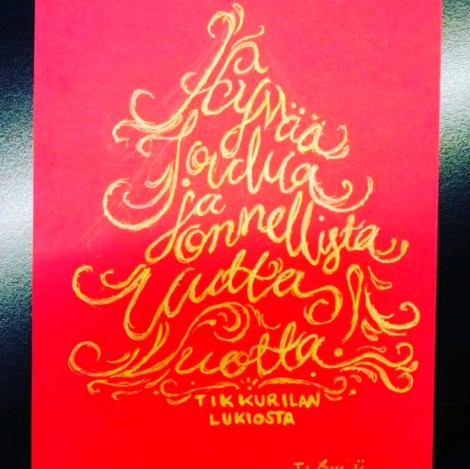 Ja
Hyvää
Joulua
ja
onnellista
Uutta
Vuotta.
TIKKURILAN
LUKIOSTA